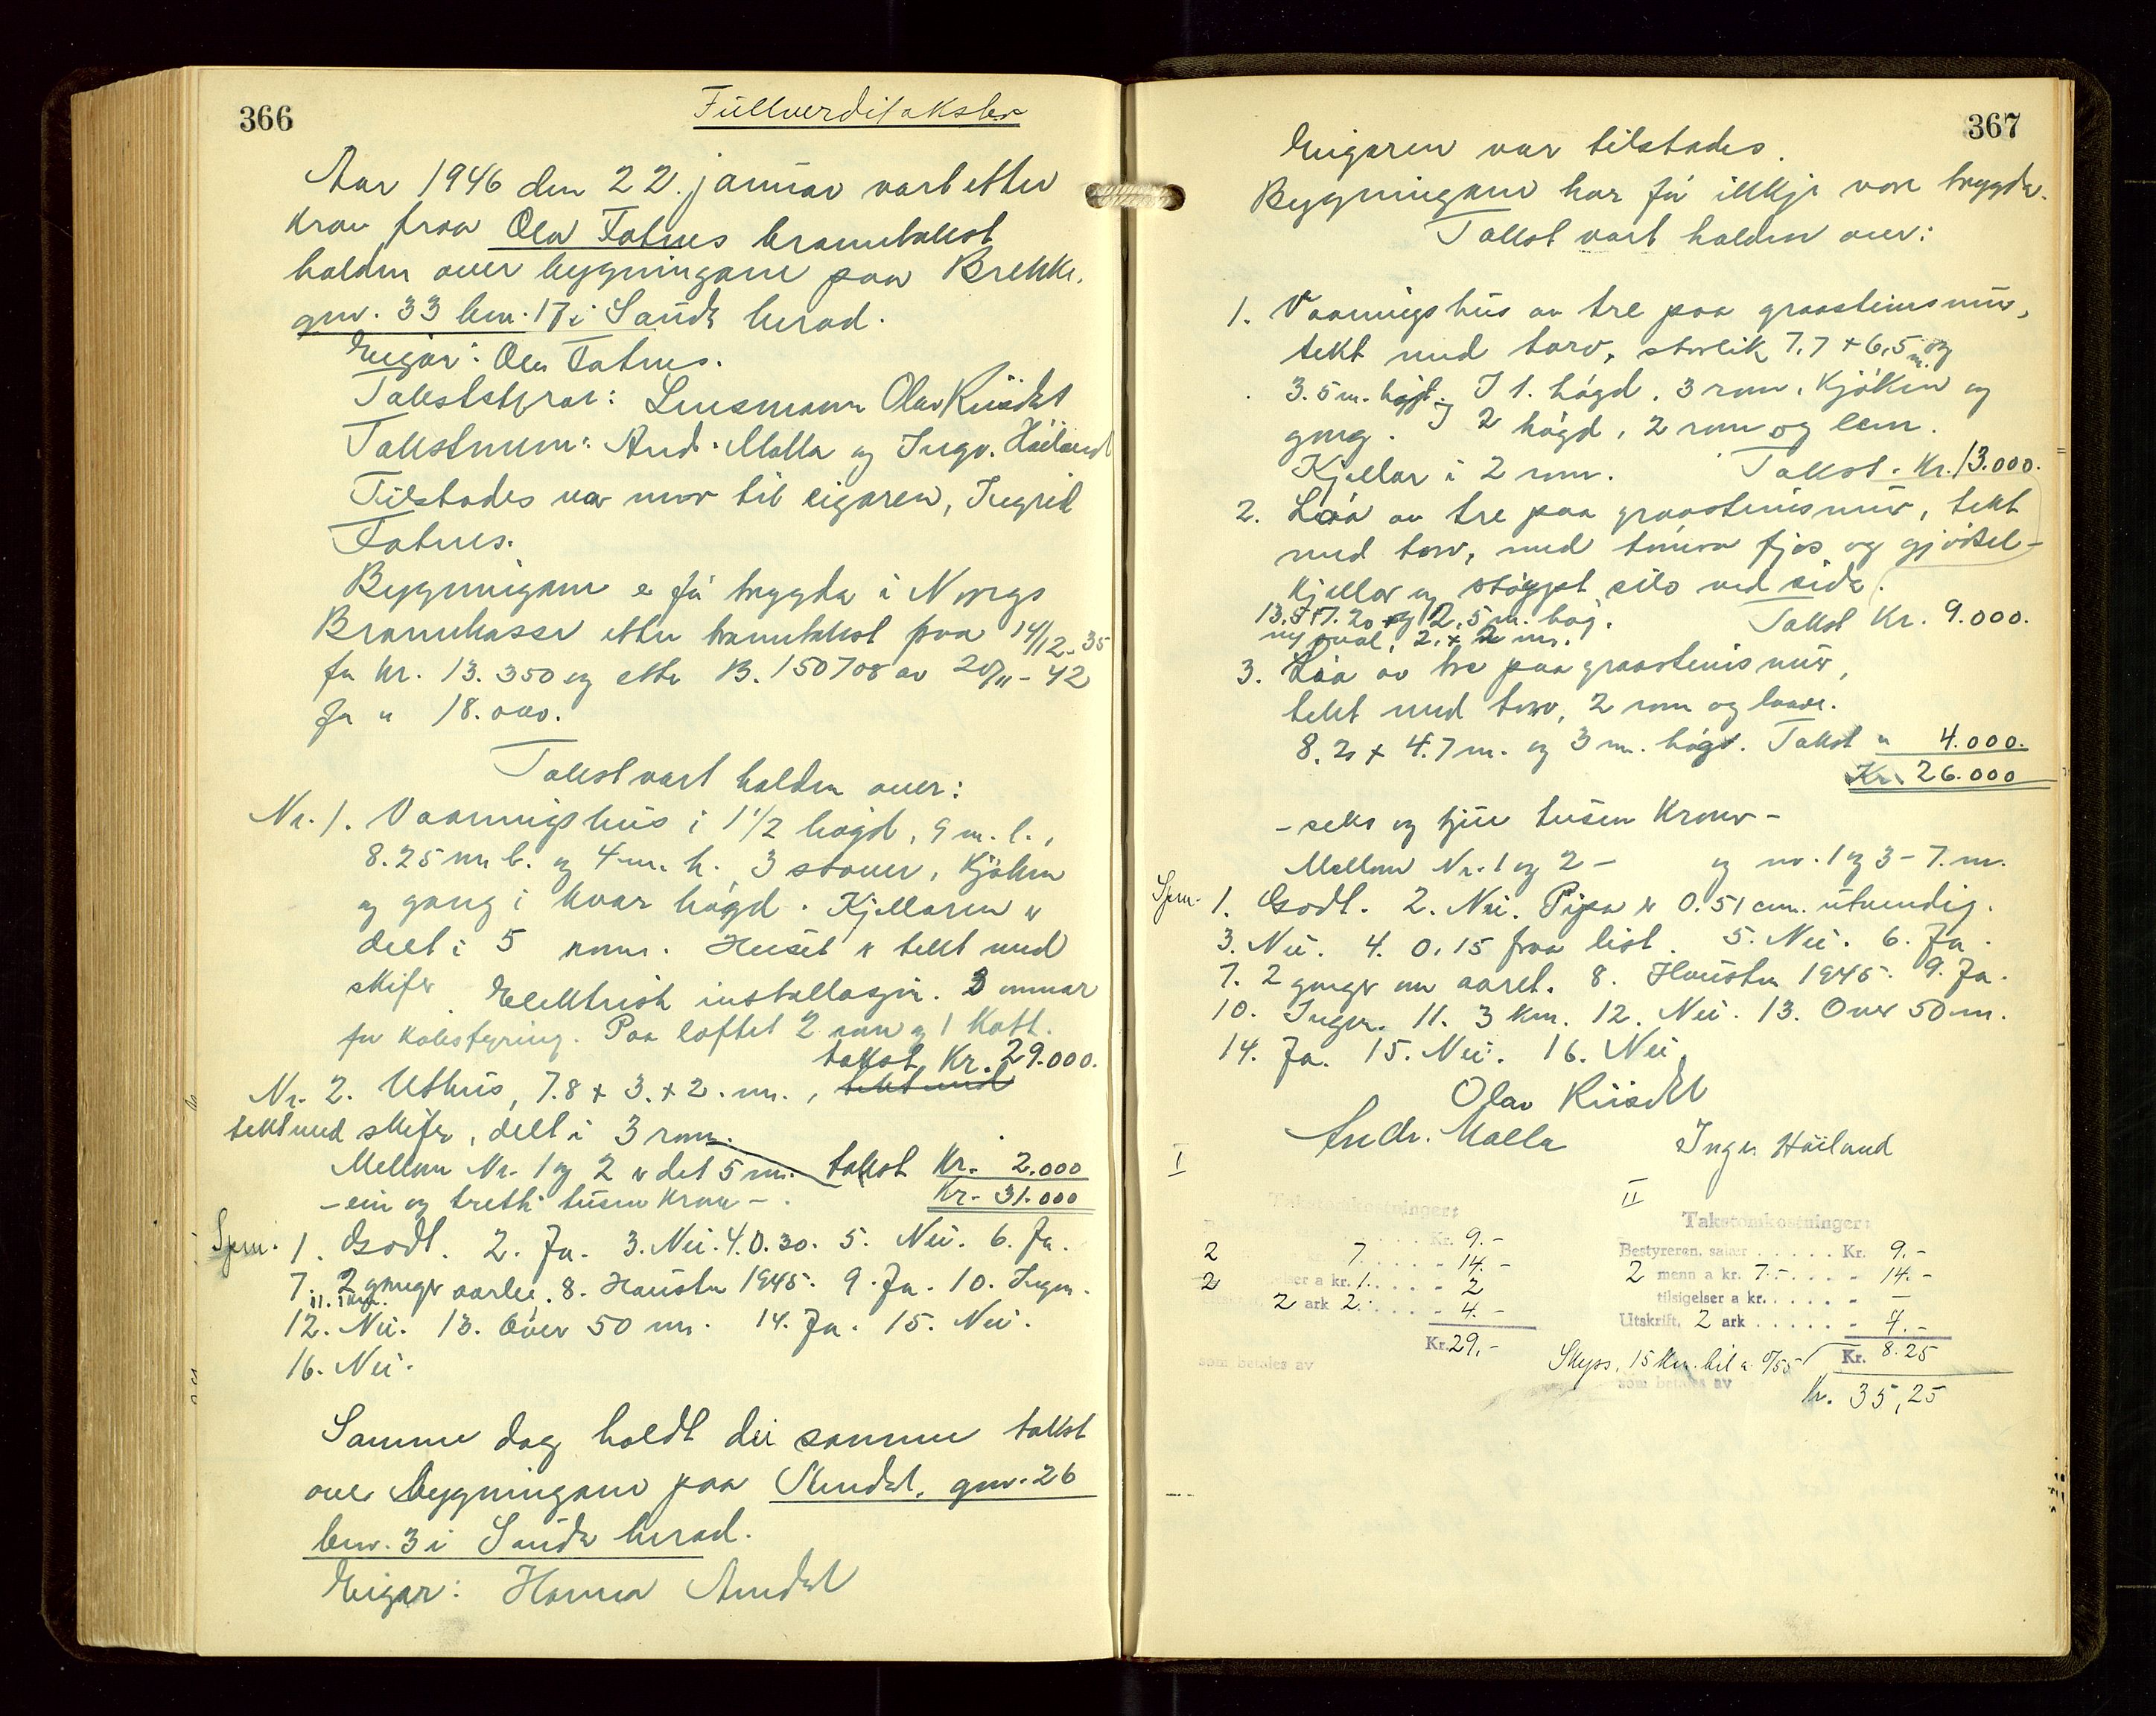 366
Fullverditakster
Aar 1946 den 22. januar vart etter
krav fraa Ola Fatnes branntakst
halden over bygningane paa Brekke,
gnr. 33 bnr. 17 i Sauda herad.
Eigar: Ola Fatnes.
Takststyrar: Lensmann Olav Riisdal
Takstmenn: And. Malla og Ingv. Høiland
Tilstades var mor til eigaren, Ingrid
Fatnes.
Bygningane er før trygda i Norges
Brannkasse etter branntakst paa 14/12-35
for kr. 13.350 og etter B. 150708 av 20/11-42
for " 18.000.
Takst vart halden over:
Nr. 1. Vaaningshus i 1 1/2 høgd, 9 m. l.,
8.25 m b. og 4 m. h. 3 stover, kjøken
og gang i kvar høgd. Kjellaren er
delt i 5 rom. Huset er tekt med
skifer. Elektrisk installasjon. 3 omnar
for kolefyring. Paa loftet 2 rom og 1 kott.
takst Kr. 29.000.
Nr. 2. Uthus, 7.8 + 3. + 2. m., tekt med
tekt med skifer, delt i 3 rom.
Mellom Nr. 1 og 2 er det 5 m. takst Kr. 2.000
- ein og tretti tusen kroner - Kr. 31.000
Spm. 1. Godt. 2. Ja. 3. Nei. 4. 0.30. 5. Nei. 6. Ja.
7. 2 gonger aarleg. 8. Hausten 1945. 9. Ja. 10. Ingen.
11. 1 km.
12. Nei. 13. Over 50 m. 14. Ja. 15. Nei.
16. Nei.
Samme dag holdt dei samme takst
over bygningane paa Amdal, gnr. 26
bnr. 3 i Sauda herad.
Eigar: Hanna Amdal
367
Eigaren var tilstades.
Bygningane har før ikkje vore trygda.
Takst vart halden over:
1. Vaaningshus av tre paa graasteinsmur,
tekt med torv, storleik 7,7 + 6,5 m. og
3.5 m. høgt. I 1. høgd, 3 rom, kjøken og
gang. I 2 høgd, 2 rom og lem.
Kjellar i 2 rom. Takst. Kr. 13.000.
2. Løa av tre paa graasteinsmur, tekt
med torv, med tømra fjos og gjødsel-
kjellar og støypt silo ved sida.
13.5 + 7.20 og 2,5 m. høg. Takst Kr. 9.000.
2. + 2 m.
3. Løa av tre paa graasteinsmur,
tekt med torv, 2 rom og laave.
8.20 + 4.7 m. og 3 m. høgt. Takst " 4.000.
Kr. 26.000
- seks og tjue tusen kroner -
Mellom Nr. 1 og 2 - og nr. 1 og 3 - 7. m.
Spm. 1. Godt. 2. Nei. Pipa er 0.51 cm. utvendig.
3. Nei. 4. 0.15 fraa list. 5. Nei. 6. Ja.
7. 2 gonger om aaret. 8. Hausten 1945. 9. Ja.
10. Ingen. 11. 3 km. 12. Nei. 13. Over 50 m.
14. Ja. 15. Nei. 16. Nei.
Olav Riisdal
Andr. Malla Ingv. Høiland
I
Takstomkostninger:
Kr. 9.-
2 7. - 14.-
2 elser a kr. 1. - 2
2 ark 2. - 4.-
Kr. 29,-
som betales av
II
Takstomkostninger:
Bestyreren, salær Kr. 9.-
2 menn a kr. 7.- - 14.-
tilsigelser a kr. - -
Utskrift, 2 ark - 4.-
Skyss, 15 km. bil a 0/55 Kr. 8.25
som betales av
Kr. 35,25